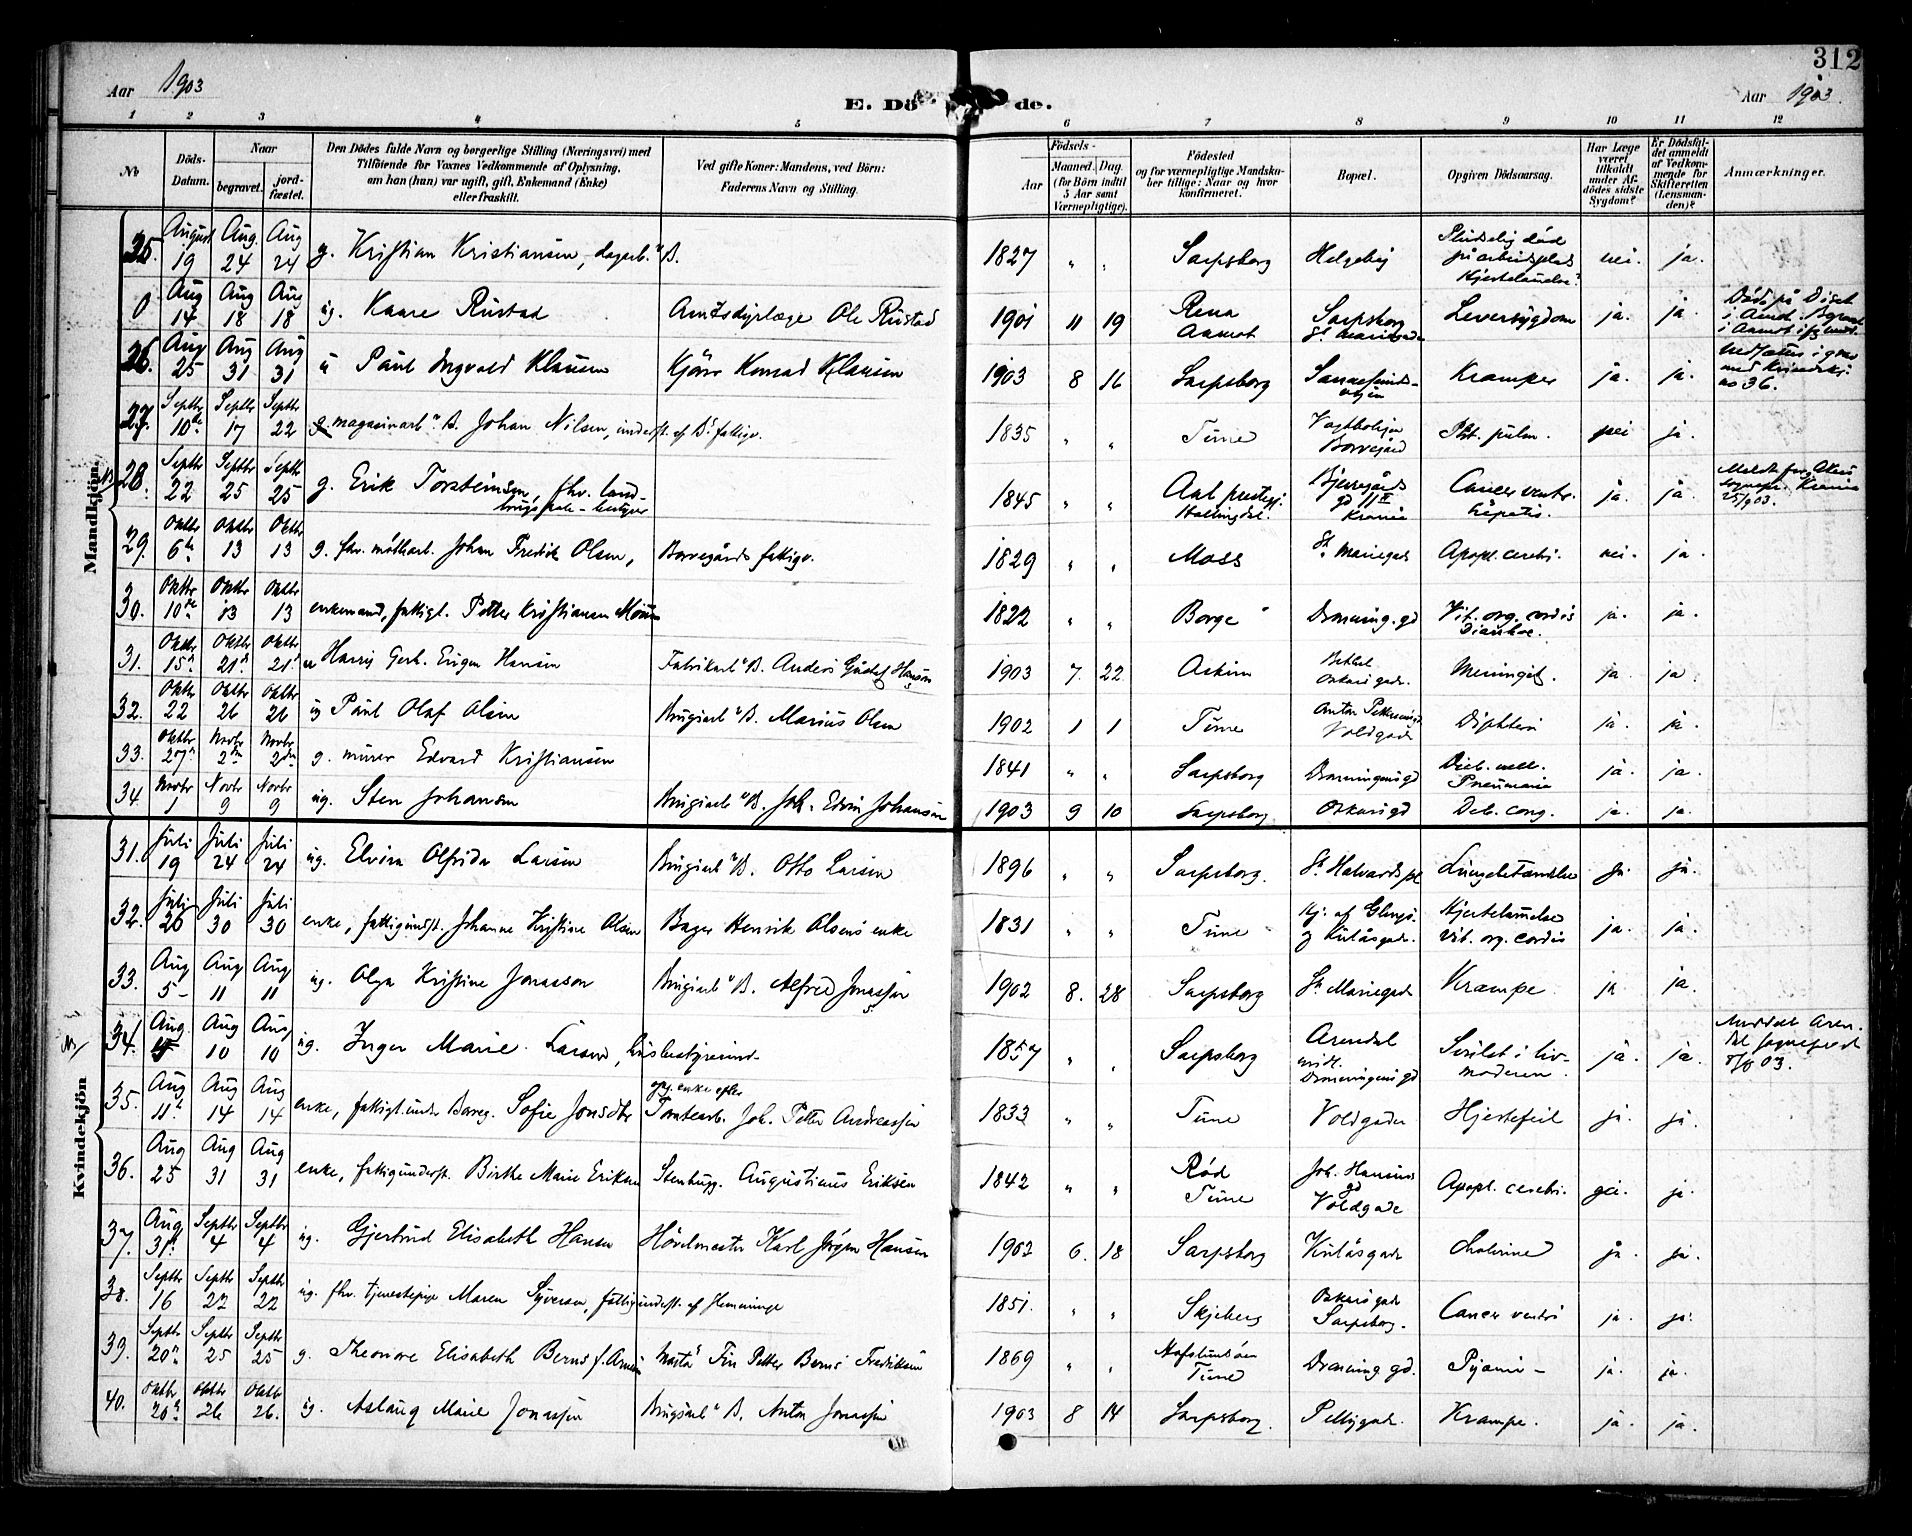 312
Aar 1903
E. Dö de.
Aar 1903.
1 2 3 4 5 6 7 8 9 10 11 12
No
Döds-
Datum.
Naar
begravet.
jord-
fæstet.
Den Dödes fulde Navn og borgerlige Stilling (Næringsvei) med
Tilföiende for Voxnes Vedkommende af Oplysning,
om han (hun) var ugift, gift, Enkemand (Enke)
eller fraskilt.
Ved gifte Koner: Mandens, ved Börn:
Faderens Navn og Stilling.
Födsels-
Aar
Maaned. Dag.
(for Börn indtil
5 Aar samt
Værnepligtige).
Födested
og for værnepligtige Mandska-
ber tillige: Naar og hvor
konfirmeret.
Bopæl.
Opgiven Dödsaarsag.
Har Læge
været
tilkaldt
under Af-
dödes sidste
Sygdom?
Er Dödsfal-
det anmeldt
af Vedkom-
mende for
Skifteretten
(Lensman-
den)?
Anmærkninger.
Mandkjön.
35. August 19 Aug. 24 Aug 24 g. Kristian Kristiansen, dagarb. B. 1827 " " Sarpsborg Helgeby Pludselig död på arbeidsplads Hjertelamelse? nei. ja.
0 Aug 14 Aug 18 Aug 18 ug. Kaare Rustad Amtsdyrlæge Ole Rustad 1901 11 19 Rena Aamot Sarpsborg St. Mariegade Leversygdom ja. ja.
26. Aug 25 Aug 31 Aug 31 u Paul Ingvald Klausen Kjörer Konrad Klausen 1903 8 16 Sarpsborg Kramper ja. ja. no 36.
27. Septbr 10de Septbr 17 Septbr 22 g magasinarb. B. Johan Nilsen, underst. af B. fattigv. 1835 " " Tune Borregård Pht. pulm. nei ja.
28. Septbr 22 Septbr 25 Septbr 25 g. Erik Torsteinsen, fhv. landbrugsskole-bestyrer 1845 " " Aal prestegj. Hallingdal. Kr.ania Cancer ventr. hepatis. ja. ja. 25/9 03.
29. Oktbr 6te Oktbr 13 Oktbr 13 g. fhv. möllearb. Johan Fredrik Olsen, Borregårds fattigv. 1829 " " Moss St. Mariegade Apopl. cerebri. nei. ja.
30. Oktbr 10de Oktbr 13 Oktbr 13 enkemand, fattigl. Petter Kristiansen 1822 " " Borge Dronning. gd Vit. org. cordis Diarrhoe. ja. ja.
31. Oktbr 15 Oktbr 21 Oktbr 21 u Harry Gerh. Eugen Hansen Fabrikarb. B. Anders Gustaf Hansen 1903 7. 22. Askim Oskarsgade. Meningit. ja ja
32. Oktbr 22 Oktbr 26 Oktbr 26 ug Paul Olaf Olsen Brugsarb. B. Marius Olsen 1902 1 1 Tune Voldgade Difteri ja. ja.
33. Oktbr 27 Novbr 2 Novbr 2 g. murer Edvard Kristiansen 1841 " " Sarpsborg Dronningensgd Diab. mell. Pneumonia ja. ja.
34. Novbr 1 Novbr 9 Novbr 9 ug. Sten Johansen Brugsarb. B. Joh. Edvin Johansen 1903 9 10 Sarpsborg Oskarsgd Deb. cong. ja. ja.
Kvindekjön
31. Juli 19 Juli 24 Juli 24 ug. Elvira Alfrida Larsen Brugsarb. B. Otto Larsen 1896 " " Sarpsborg. St. Halvards pl Lungebetændelse ja ja.
32. Juli 26 Juli 30 Juli 30 enke, fattigunderst. Johanne Kristine Olsen Bager Henrik Olsens enke 1831 " " Tune Kulåsgade. Hjertelamelse Vit. org. cordis ja. ja.
33. Aug 5 Aug 11 Aug 11 ug. Olga Kristine Jonasson Brugsarb. B. Alfred Jonassen 1902 8. 28 Sarpsborg St. Mariegade Krampe ja ja.
34. Aug. Aug 10 Aug 10 ug. Inger Marie Larsen, husbestyrerinde 1857 " " Sarpsborg Arendal midl. Dronningensgd Svulst i livmoderen. ja. ja.
35. Aug 11 Aug 14 Aug 14 enke, fattigl. under Borreg. Sofie Jonsdtr opg. enke efter Tomtearb. Joh. Petter Andreassen 1833 " " Tune Voldgaden Hjertefeil ja. ja.
36. Aug 25 Aug 31 Aug 31 enke, fattigunderst. Birthe Marie Eriksen Stenhugg. Augustinus Eriksen 1842 " " Rød Tune Joh. Hansens gd Voldgade Apopl. cerebri. nei. ja.
37. Aug. 31 Septbr 4 Septbr 4 ug. Gjertrud Elisabeth Hansen Hövelmester Karl Jörgen Hansen 1902 6. 18 Sarpsborg Kulåsgade Cholerine ja. ja.
38. Septbr 16 Septbr 22 Septbr 22 ug. fhv. tjenestepige Maren Syversen, fattigunderst. af Hemminge 1851. " " Skjeberg Oskarsgade Sarpsborg. Cancer ventri ja. ja.
39. Septbr 20 Septbr 25 Septbr 25 g. Theonore Elisabeth Berns Petter Berns Fredriksen 1869 " " Hafslundsöen Tune Dronning. gd. Pyæmie ja. ja.
40. Oktbr 20 Oktbr 26 Oktbr 26. ug. Aslaug Marie Jonassen Brugsarb. B. Anton Jonassen 1903 8 14 Sarpsborg. Pellygade. Krampe. ja. ja